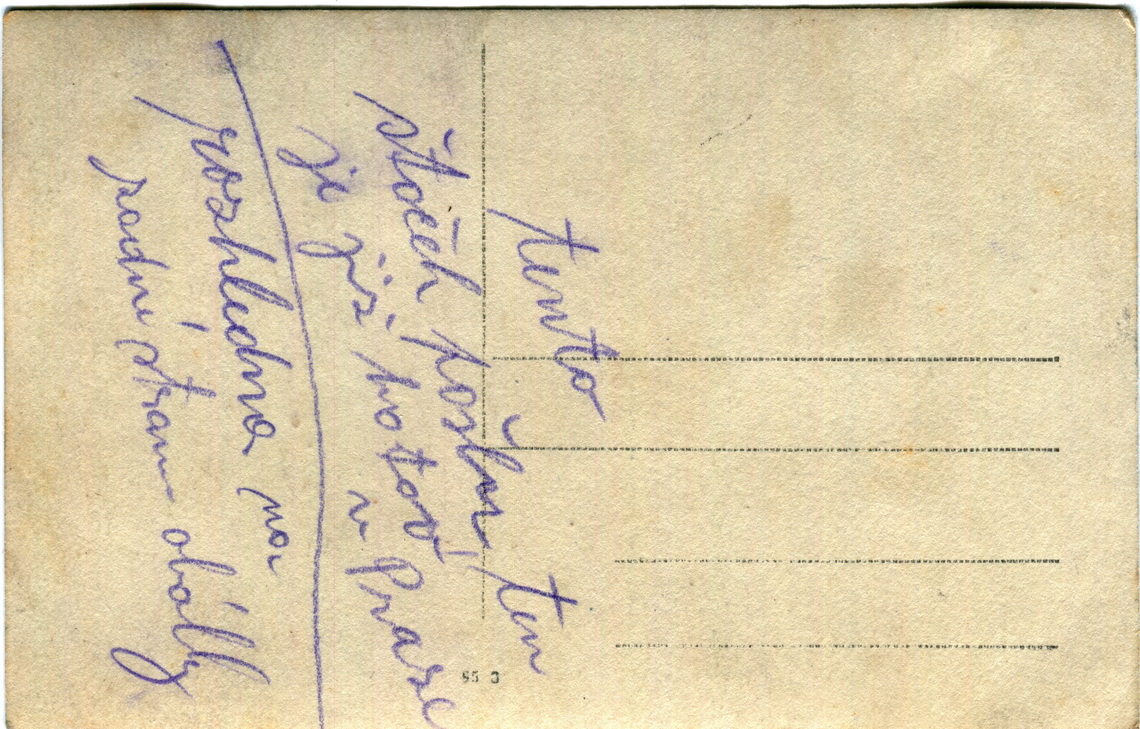 tento
štoček pošlu! ten
je již hotov
v Praze
rozhledna na
zadní straně obálky
95 3